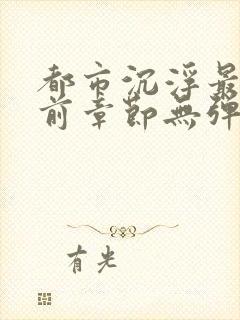 都市沉浮最
前章節無彈
有光